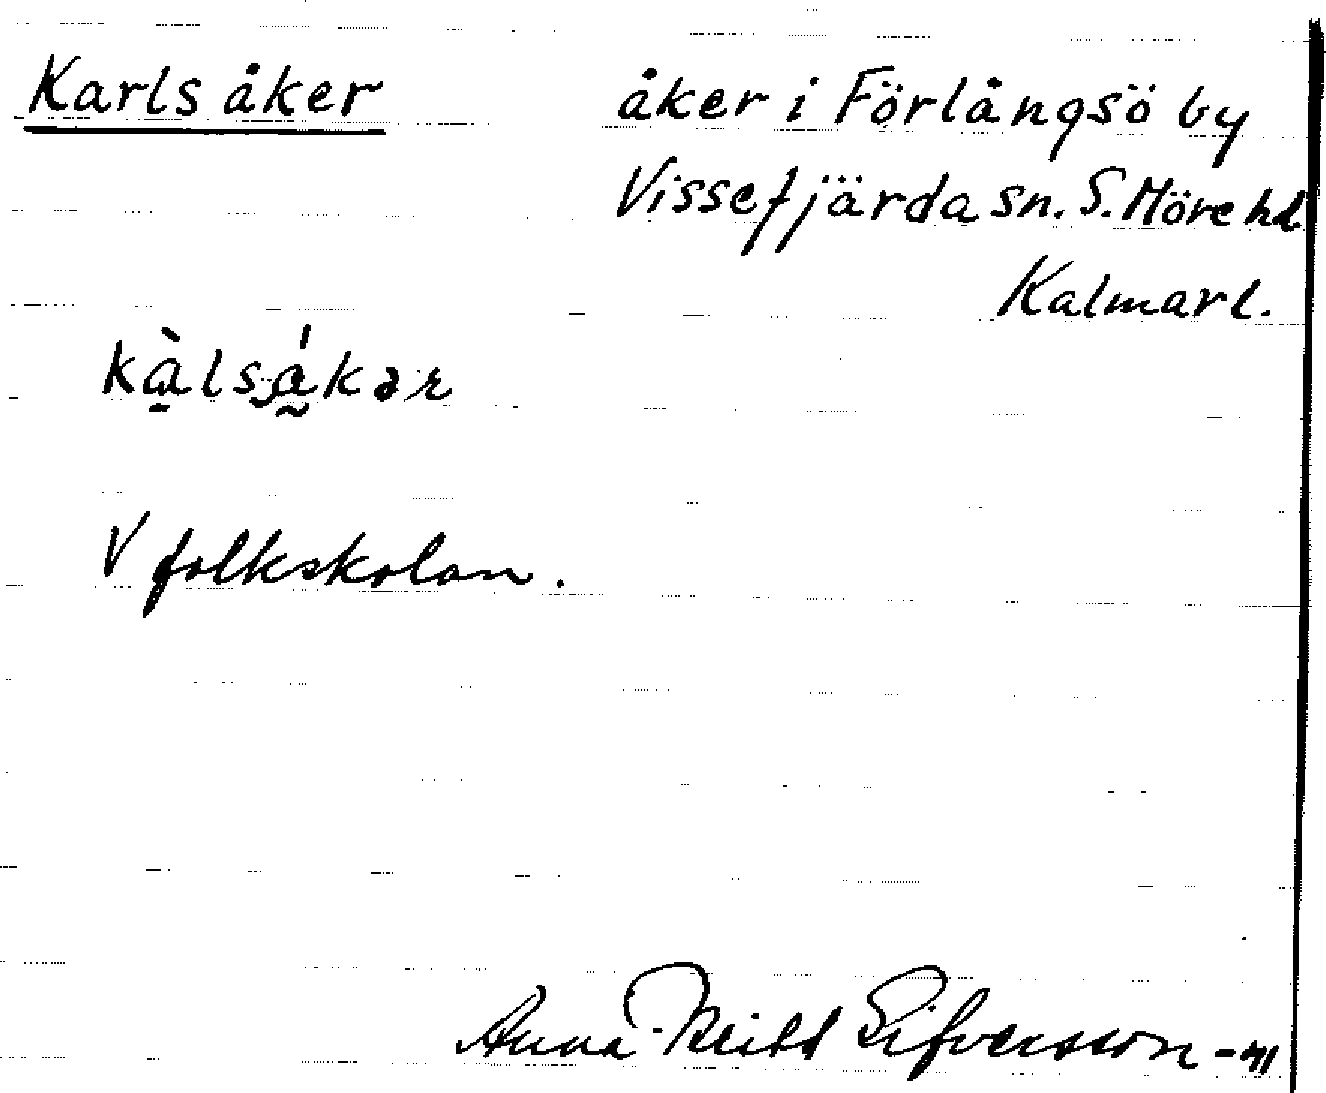 Karlsåker
åker i Förlångsö by
Vissefjärda sn. S. Möre hd
Kalmar l.
kàlsákər
V folkskolan.
Anna Sifversson -41